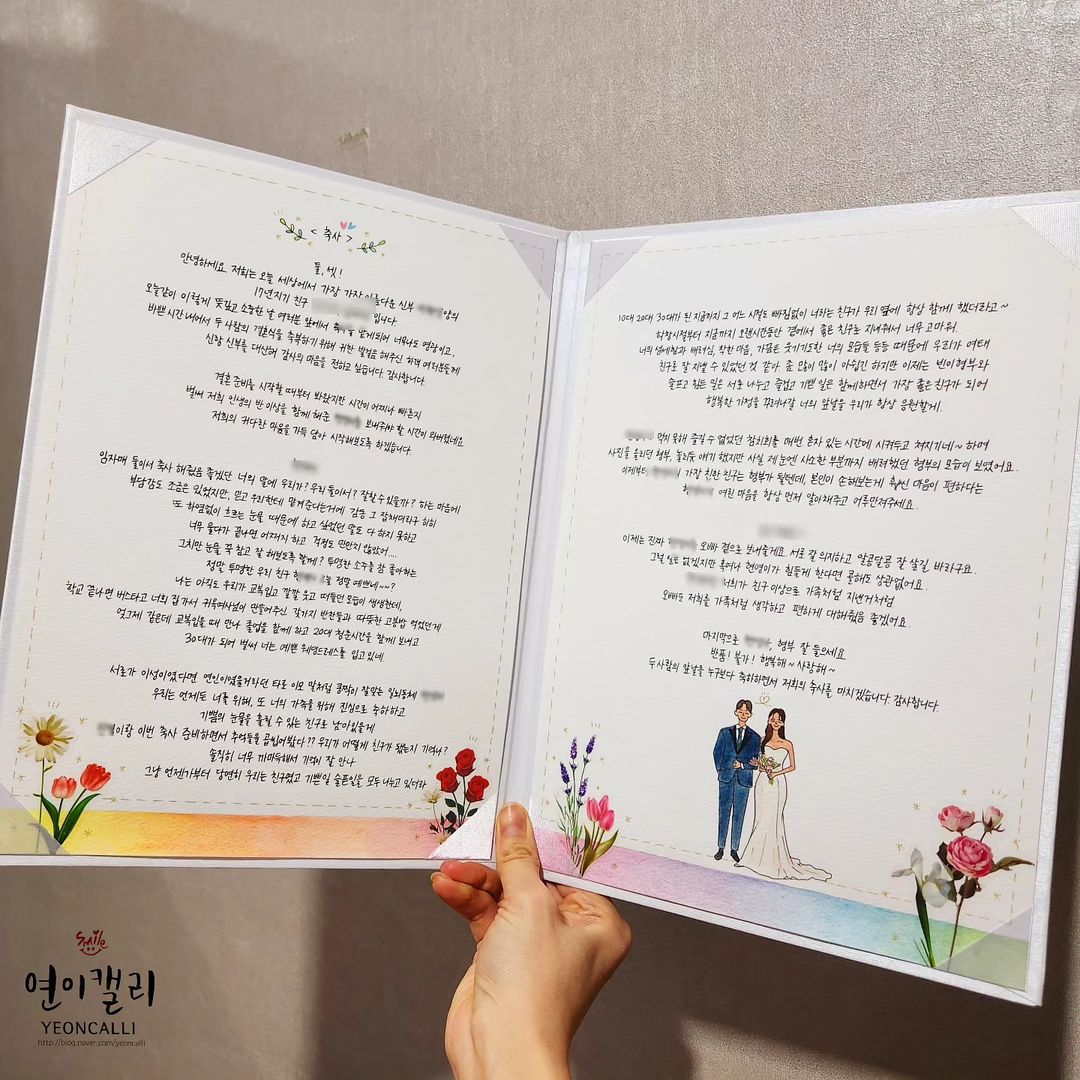 < 축사 >
둘, 셋!
안녕하세요. 저희는 오늘 세상에서 가장 가장 아름다운 신부 양의
17년지기 친구 입니다.
오늘같이 이렇게 뜻깊고 소중한 날 여러분 앞에서 축사를 맡게되어 너무나도 영광이고,
바쁜시간 내어서 두 사람의 결혼식을 축복하기 위해 귀한 발걸음 해주신 하객 여러분들께
신랑 신부를 대신해 감사의 마음을 전하고 싶습니다. 감사합니다.
결혼 준비를 시작할 때부터 봐왔지만 시간이 어찌나 빠른지
벌써 저희 인생의 반 이상을 함께 해준 보내주어야 할 시간이 와버렸네요.
저희의 커다란 마음을 가득 담아 시작해보도록 하겠습니다.
임자매 둘이서 축사 해줬음 좋겠단 너의 말에 우리가? 우리 둘이서? 잘할수있을까? 하는 마음에
부담감도 조금은 있었지만, 믿고 우리한테 맡겨준다는거에 감동 그 잡채더라구 히히
또 하염없이 흐르는 눈물 때문에 하고 싶었던 말도 다 하지 못하고
너무 울다가 끝나면 어쩌지 하고 걱정도 만만치 않았어....
그치만 눈물 꾹 참고 잘 해보도록 할게? 투명한 소주를 참 좋아하는
정말 투명한 우리 친구 오늘 정말 예쁘네~~?
나는 아직도 우리가 교복입고 깔깔 웃고 떠들던 모습이 생생한데,
학교 끝나면 버스타고 너희 집 가서 귀욱여사님이 만들어주신 갖가지 반찬들과 따뜻한 고봉밥 먹었던게
엊그제 같은데 교복입을 때 만나 졸업을 함께 하고 20대 청춘시간을 함께 보내고
30대가 되어 벌써 너는 예쁜 웨딩드레스를 입고있네
서로가 이성이였다면 연인이였을거라던 타로 이모 말처럼 쿵짝이 잘맞는 일심동체
우리는 언제든 너를 위해, 또 너의 가족을 위해 진심으로 축하하고
기쁨의 눈물을 흘릴 수 있는 친구로 남아있을게
이랑 이번 축사 준비하면서 추억들을 곱씹어봤다?? 우리가 어떻게 친구가 됐는지 기억나?
솔직히 너무 까마득해서 기억이 잘 안나
그냥 언제가부터 당연히 우리는 친구였고 기쁜일 슬픈일을 모두 나누고 있더라
10대 20대 30대가 된 지금까지 그 어느 시절도 빠짐없이 너라는 친구가 우리 옆에 항상 함께 했더라고~
학창시절부터 지금까지 오랜시간동안 곁에서 좋은 친구로 지내줘서 너무 고마워.
너의 섬세함과 배려심, 착한 마음, 가끔은 웃기기도한 너의 모습들 등등 때문에 우리가 여태
친구로 잘 지낼 수 있었던 것 같아. 좀 많이 많이 아쉽긴 하지만 이제는 빈이형부와
슬프고 힘든 일은 서로 나누고 즐겁고 기쁜 일은 함께하면서 가장 좋은친구가 되어
행복한 가정을 꾸려나갈 너의 앞날을 우리가 항상 응원할게.
먹지 못해 즐길 수 없었던 참치회를 매번 혼자 있는 시간에 시켜두고 처자기네~ 하며
사진을 올리던 형부, 놀리듯 얘기 했지만 사실 제 눈엔 사소한 부분까지 배려했던 형부의 모습이 보였어요.
이제부터, 가장 친한 친구는 형부가 될텐데, 본인이 손해보는게 훨씬 마음이 편하다는
여린 마음을 항상 먼저 알아채주고 어루만져주세요.
이제는 진짜 오빠 곁으로 보내줄게요. 서로 잘 의지하고 알콩달콩 잘 살길 바라구요.
그럴 일은 없겠지만 혹여나 현영이가 힘들게 한다면 콜해도 상관없어요.
너희가 친구 이상으로 가족처럼 지낸거처럼
오빠도 저희를 가족처럼 생각하고 편하게 대해줬음 좋겠어요.
마지막으로 형부 잘 들으세요
반품! 불가! 행복해~ 사랑해~
두사람의 앞날을 누구보다 축하하면서 저희의 축사를 마치겠습니다. 감사합니다.
Smile
연이캘리
YEONCALLI
http://blog.naver.com/yeoncalli